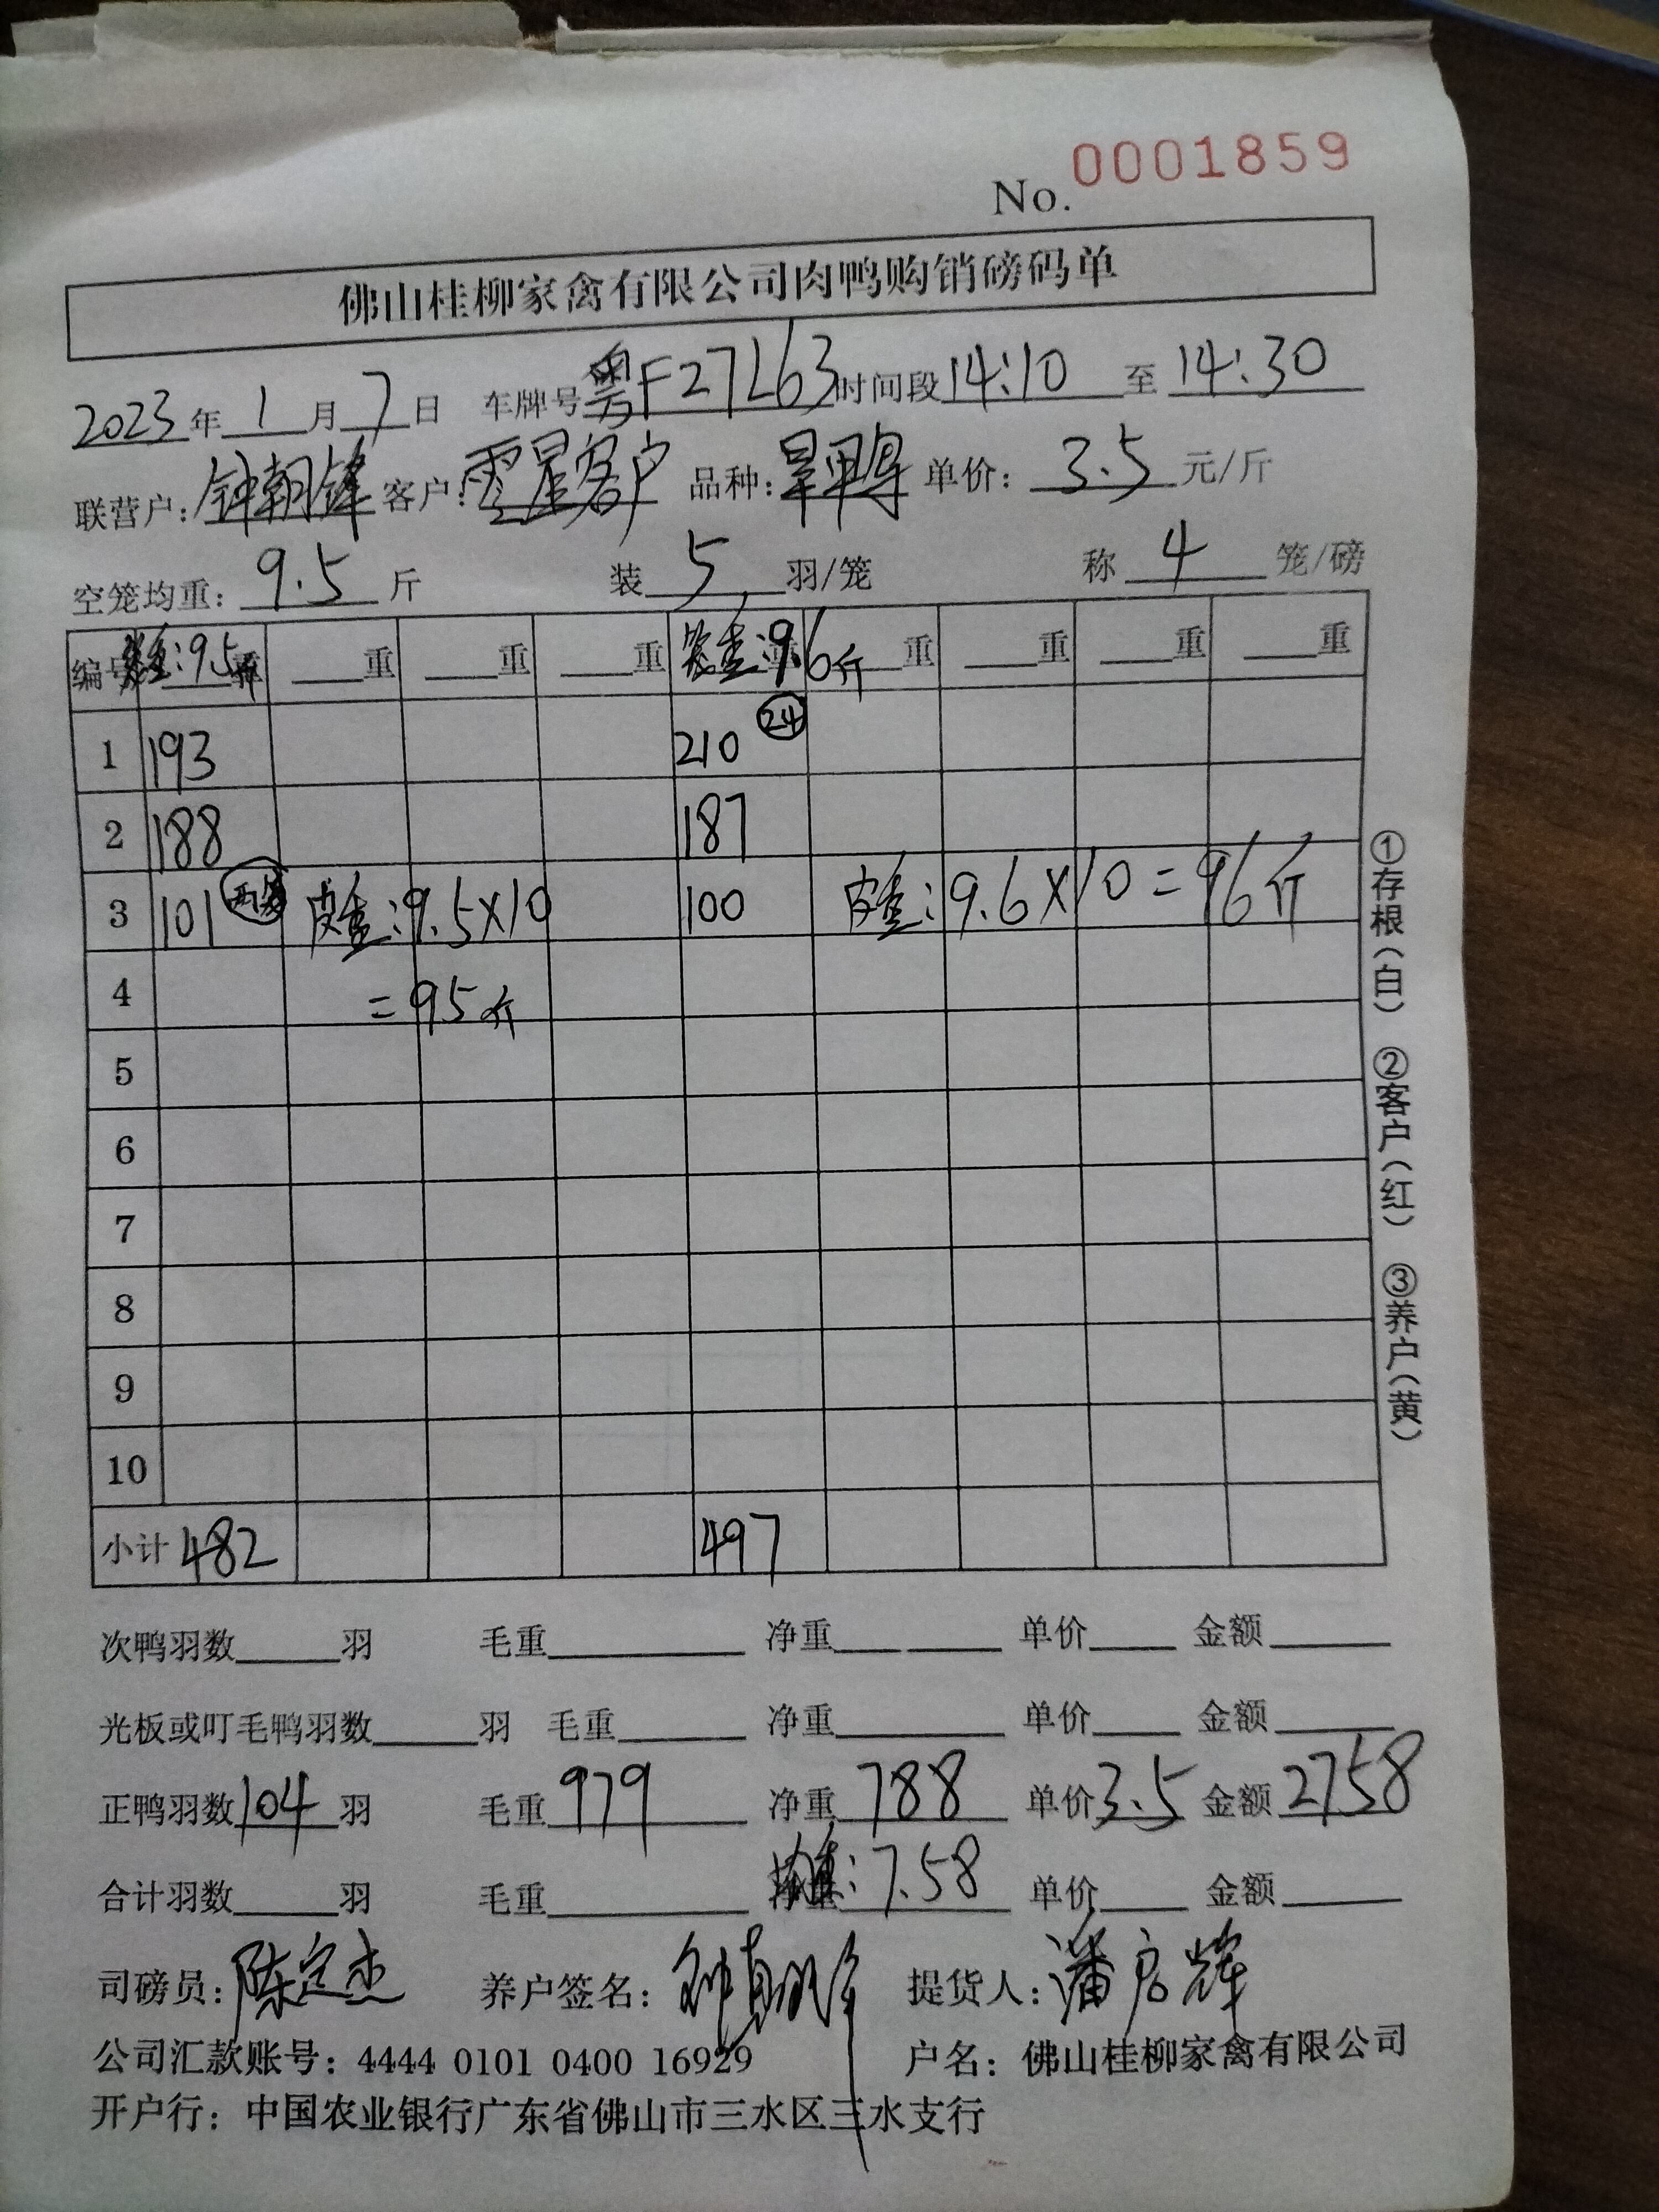 No. 0001859
佛山桂柳家禽有限公司肉鸭购销磅码单
2023年1月7日 车牌号粤F27L63时间段14:10至14:30
联营户:钟朝锋 客户:零星客户 品种:旱鸭 单价:3.5元/斤
空笼均重:9.5斤 装5羽/笼 称4笼/磅
编号 笼重:9.5斤 重 重 重 重 笼重:9.6斤 重 重 重 重
1 193 210 24
2 188 187
3 101 两笼 皮重:9.5×10 100 皮重:9.6×10=96斤
4 =95斤
5
6
7
8
9
10
小计 482 497
次鸭羽数 羽 毛重 净重 单价 金额
光板或叮毛鸭羽数 羽 毛重 净重 单价 金额
正鸭羽数104羽 毛重979 净重788 单价3.5 金额2758
合计羽数 羽 毛重 净重 均重:7.58 单价 金额
司磅员:陈定杰 养户签名:钟朝锋 提货人:潘启辉
公司汇款账号:4444 0101 0400 16929 户名:佛山桂柳家禽有限公司
开户行:中国农业银行广东省佛山市三水区三水支行
①存根(白) ②客户(红) ③养户(黄)